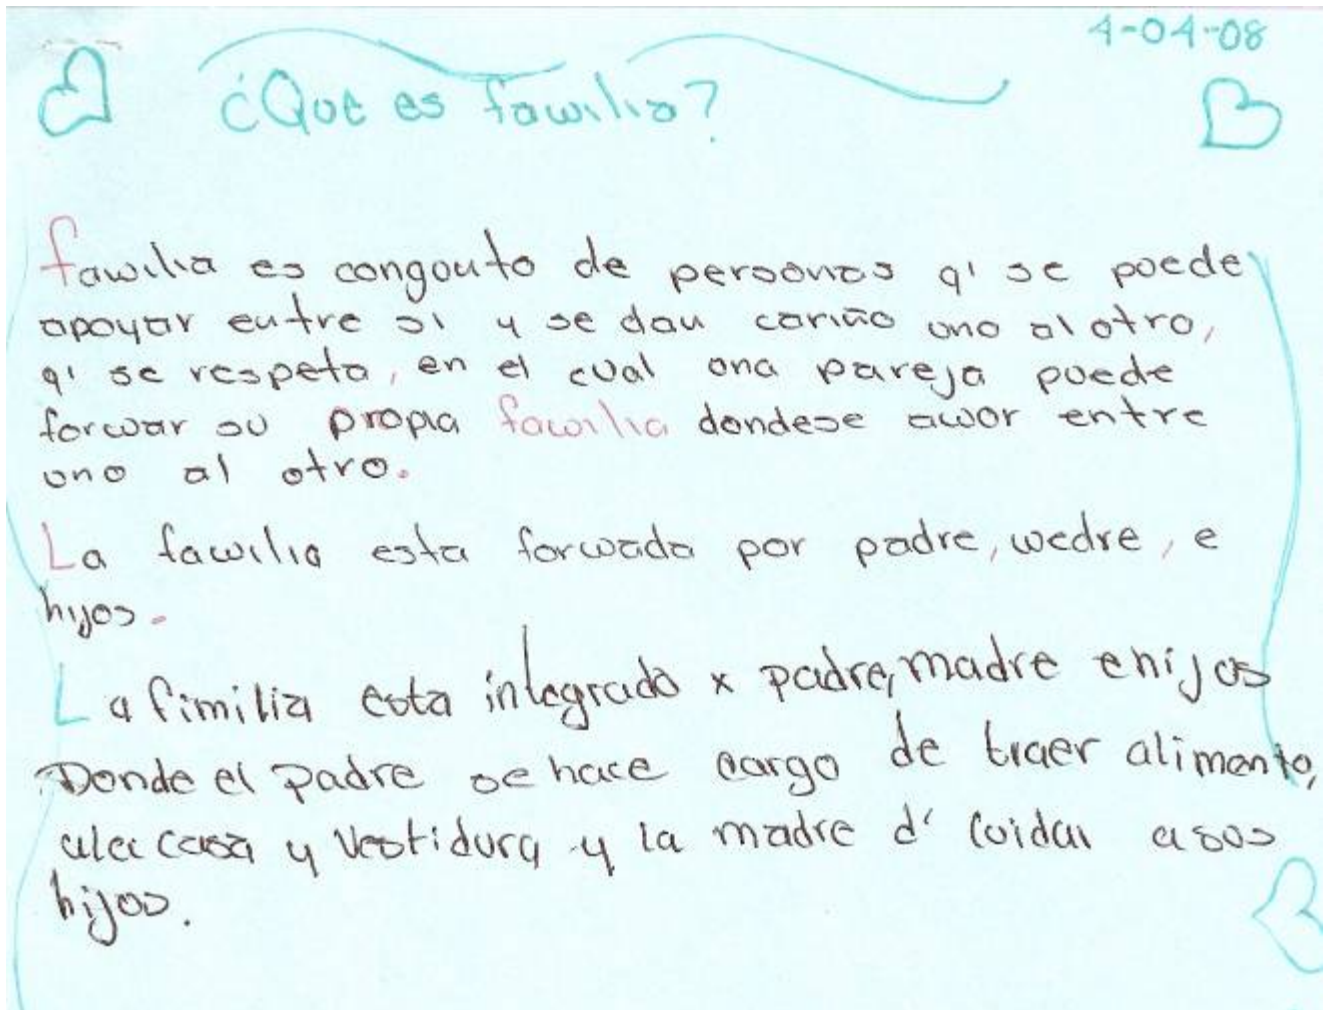 4-04-08
¿Que es familia?
familia es congounto de personas q' se puede
apoyar entre si y se dan cariño uno al otro,
q' se respeta, en el cual una pareja puede
formar su propia familia dondese amor entre
uno al otro.
La familia esta formada por padre, medre, e
hijos.
La fimilia esta integrado x padre, madre e hijos
Donde el padre se hace cargo de traer alimento,
ala casa y vestidura y la madre d' cuidar a sus
hijos.